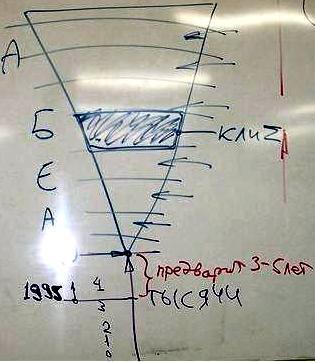 А
Б
КЛИZ
Е
А
предварит 3-5 лет
1995
1
4
ТЫСЯЧИ
3
2
1
0